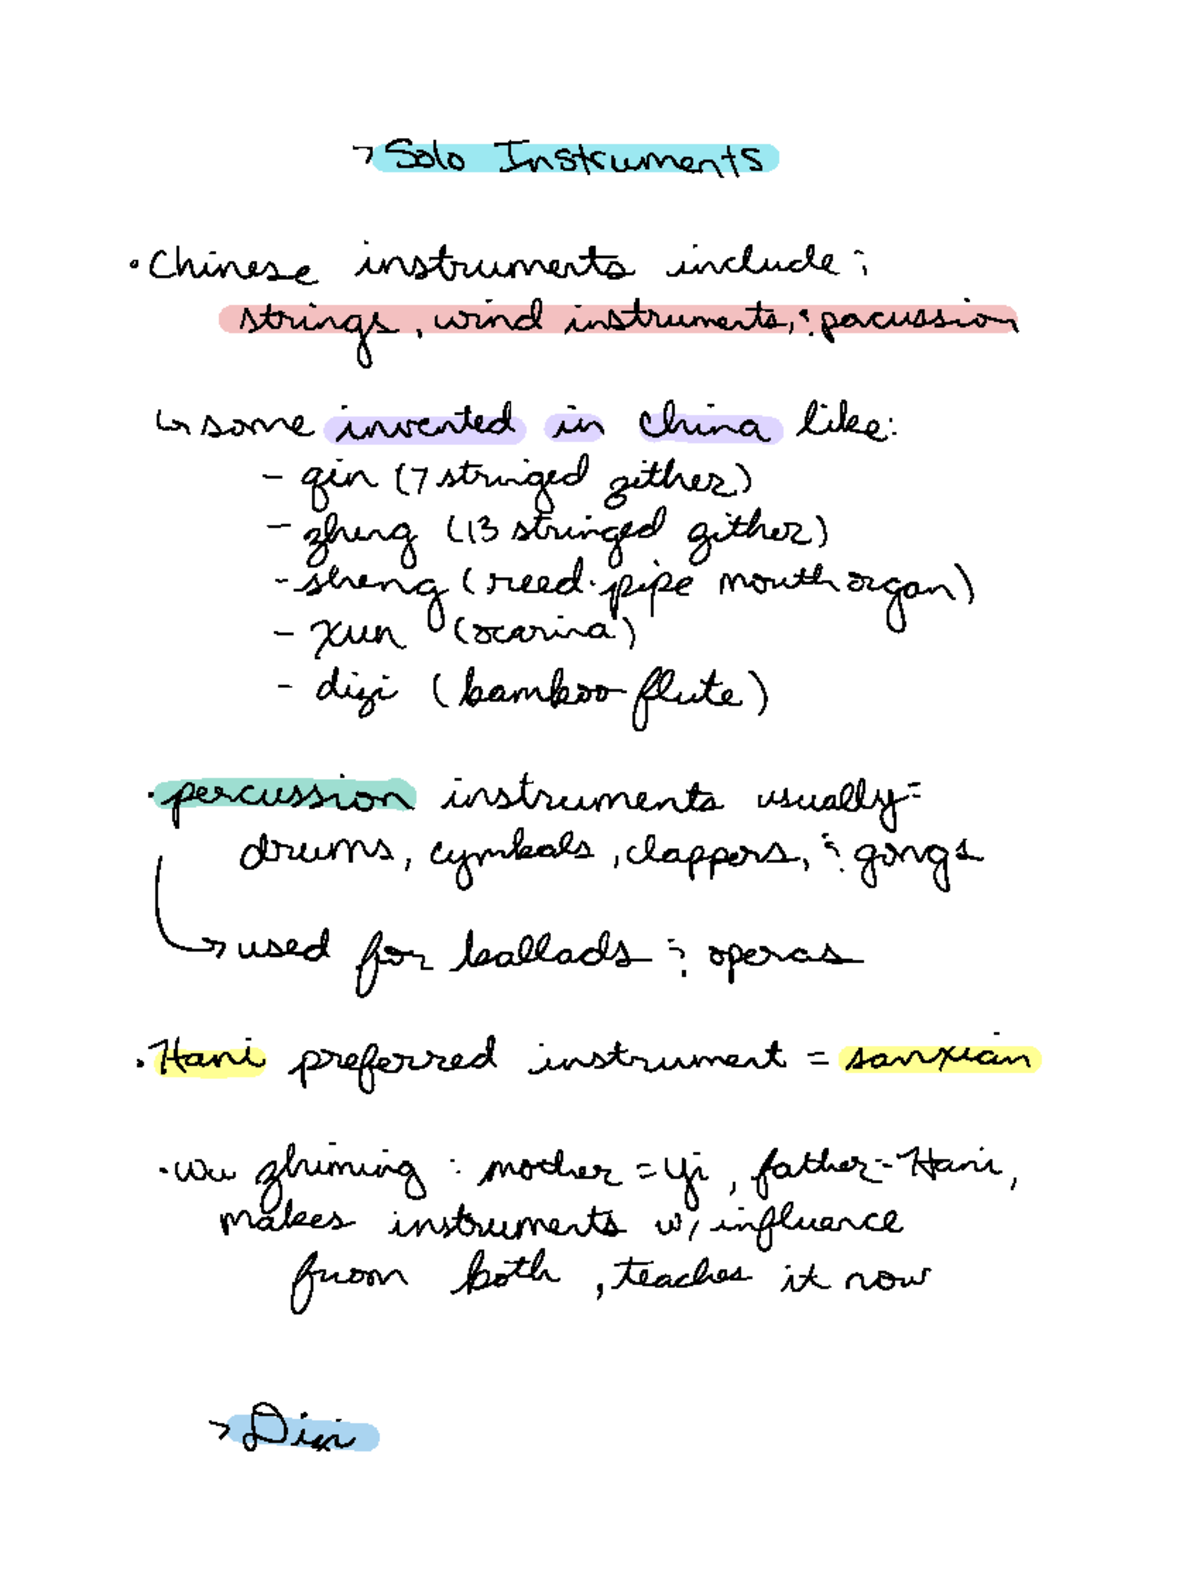 → Solo Instruments
• Chinese instruments include:
strings, wind instruments, & pacussion
↳ some invented in China like:
- qin (7 stringed zither)
- zheng (13 stringed zither)
- sheng (reed-pipe mouth organ)
- xun (ocarina)
- dizi (bamboo flute)
• percussion instruments usually =
drums, cymbals, clappers, & gongs
↳ used for ballads & operas
• Hani preferred instrument = sanxian
• Wu Zhiming: mother = Yi, father = Hani,
makes instruments w/ influence
from both, teaches it now
→ Dizi